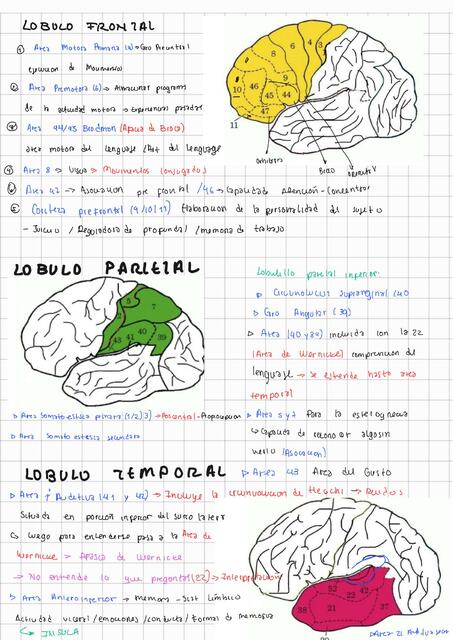 LOBULO FRONTAL
① Area Motora Primaria (4) → Giro Precentral
ejecucion de Movimiento
② Area Premotora (6) → Almacenar programas
de la actividad motora → Experiencias pasadas
③ Area 44/45 Brodman (Afasia de Broca)
area motora del lenguaje / Art del lenguaje
④ Area 8 → → Movimientos conjugados
Area → Asociacion pre frontal / 46 → Capacidad atencion - Concentrar
Corteza prefrontal (9/10/11) Elaboracion de la personalidad del sujeto
- Juicio / Reguladora de profundidad / memoria de trabajo
8
6
4
3
9
10
46
45
44
47
11
Broca
LOBULO PARIETAL
5
7
2
40
39
43
41
Area Somatoestesica primaria (1/2/3) → Poscentral -
Area Somato estesica secundaria
Lobulillo parietal inferior:
Circunvolucion supramarginal (40
Giro Angular (39)
Area (40 y 39) incluida con la 22
(Area de Wernicke) comprension del
lenguaje → Se extiende hasta area
temporal
Area 5 y 7 Para la estereognosia
↳ Capacidad de reconocer algo sin
verlo (Asociacion)
Area 43 Area del Gusto
LOBULO TEMPORAL
Area 1ª Auditiva (41 y 42) → Incluye la circunvolucion de Heschl →
Situada en porcion inferior del surco lateral
luego para entenderse pasa a la Area de
Wernicke → Afasia de Wernicke
→ No entiende lo que pregontas (22) → Interpretacion
Area Anteroinferior → memoria - Sist Limbico
Actividad viceral / emociones / conducta / Formas de memoria
↳ INSULA
52
42
38
21
22
37
20